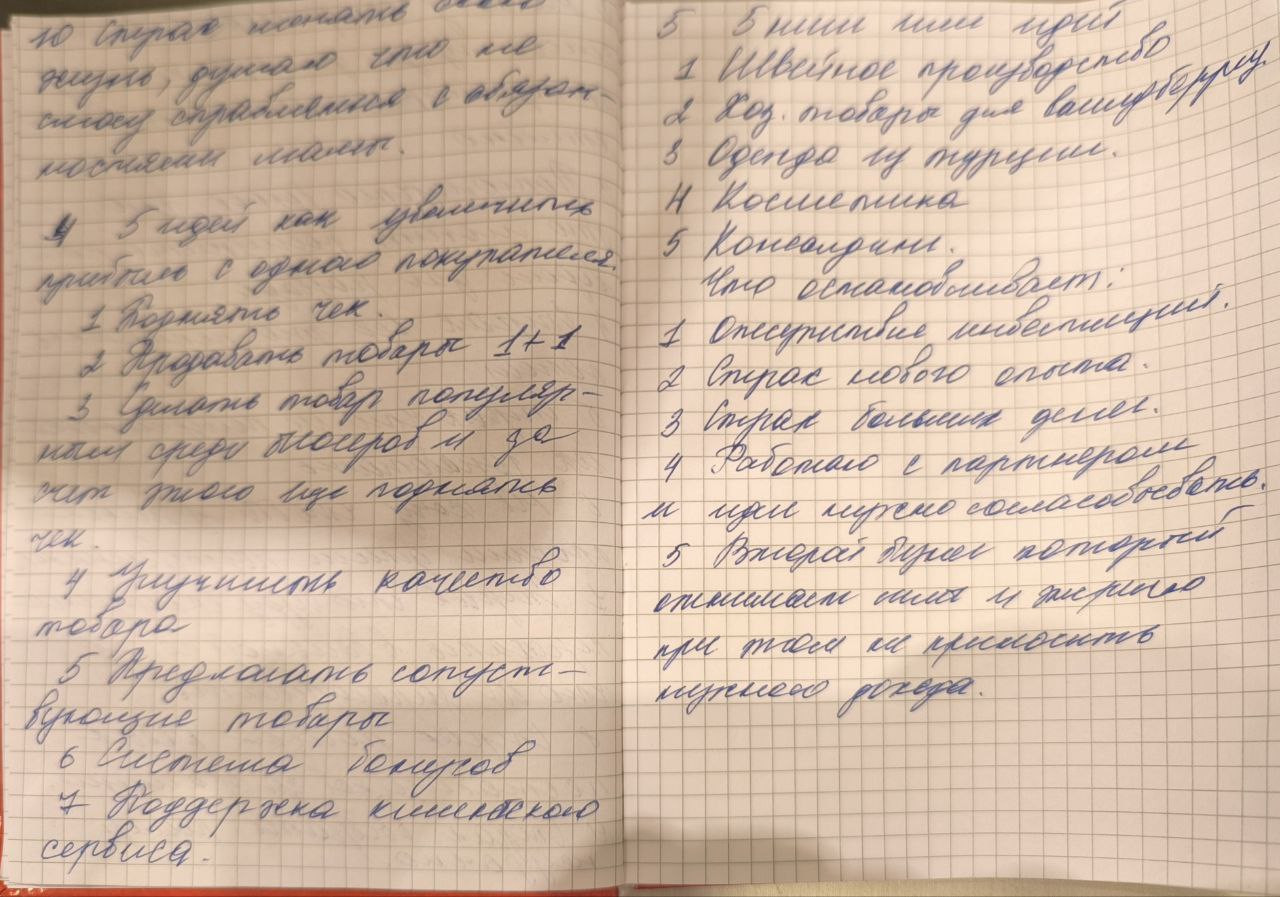 10 Страх поменять свою
жизнь, думаю что не
смогу справляться с обязан-
ностями мамы.
4 5 идей как увеличить
прибыль с одного покупателя.
1 Поднять чек.
2 Продавать товары 1+1
3 Сделать товар популяр-
ным среди блогеров и за
счет этого еще поднять
чек.
4 Улучшить качество
товара
5 Предлагать сопуст-
вующие товары
6 Система бонусов
7 Поддержка клиентского
сервиса.
5 5 ниш или идей
1 Швейное производство
2 Хоз. товары для
3 Одежда из турции.
4 Косметика
5 Консалдинг.
Что останавливает:
1 Отсутствие инвестиций.
2 Страх нового опыта.
3 Страх больших денег.
4 Работаю с партнером
и идеи нужно согласовывать.
5 Второй бизнес который
отнимает силы и энергию
при этом не приносить
нужного дохода.